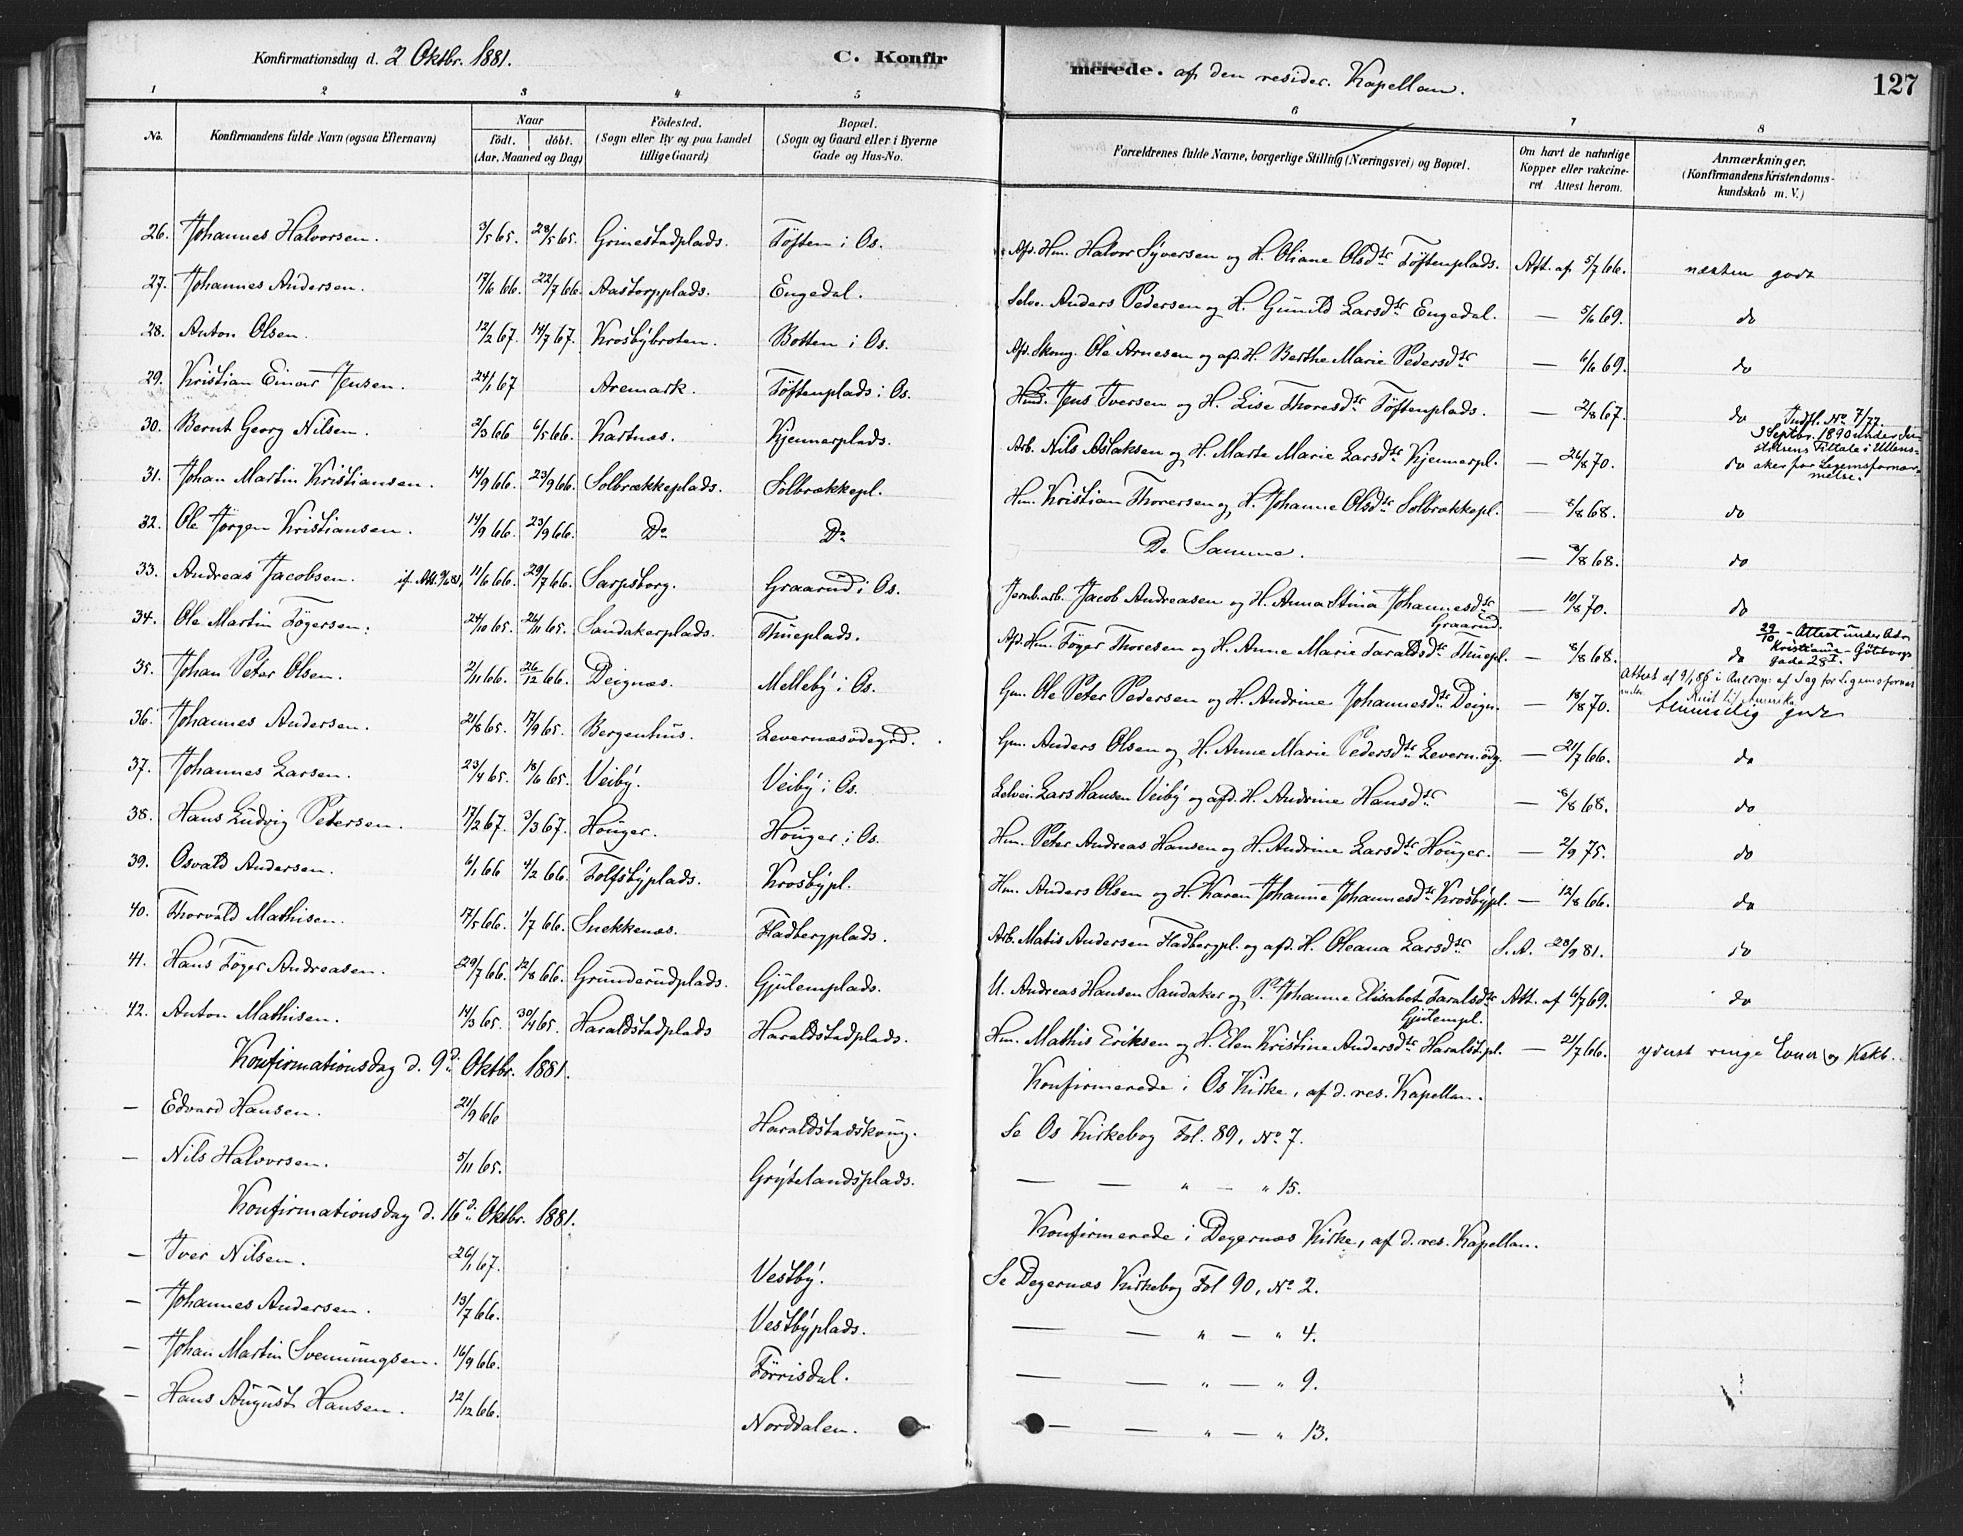 Konfirmationsdag d. 2 Oktbr. 1881. C. Konfir merede. af den resider. Kapellan. 127
1 2 3 4 5 6 7 8
No. Konfirmandens fulde Navn (ogsaa Efternavn) Naar født. døbt. (Aar, Maaned og Dag) Fødested. (Sogn eller By og paa Landet tillige Gaard) Bopæl. (Sogn og Gaard eller i Byerne Gade og Hus-No. Forældrenes fulde Navne, borgerlige Stilling (Næringsvei) og Bopæl. Om havt de naturlige Kopper eller vakcineret Attest herom. Anmærkninger. (Konfirmandens Kristendomskundskab m. V.)
26. Johannes Halvorsen. 3/5 65. 28/5 65. Grinestadplads. Tøften i Os. Afs. Hm. Halvor Syversen og H. Oliane Olsdtr Tøftenplads. Att. af 5/7 66. næsten godt
27. Johannes Andersen. 17/6 66. 22/7 66. Aastorpplads. Engedal. Selve. Anders Pedersen og H. Gunild Larsdtr Engedal. — 5/6 69. do
28. Anton Olsen. 12/2 67. 14/7 67. Krosbybroten. Botten i Os. Afs. Skomg. Ole Arnesen og afd. H. Berthe Marie Pedersdtr — 6/6 69. do
29. Kristian Einar Jensen. 24/1 67 Aremark. Tøftenplads i Os. Hmd. Jens Iversen og H. Lise Thoresdtr Tøftenplads. — 2/8 67. do
30. Bernt Georg Nilsen. 2/3 66 6/5 66. Kartnæs. Kjennerplads. Arb. Nils Aslaksen og H. Marte Marie Larsdtr Kjennerpl. — 26/8 70. do Indfl. No 7/77. 3 Septbr. 1890 under Justitiens Tiltale i Ullensaker for Legemsfornærmelse.
31. Johan Martin Kristiansen. 14/9 66. 23/9 66. Solbrækkeplads. Solbrækkepl. Hm. Kristian Thoresen og H. Johanne Olsdtr Solbrækkepl. — 8/8 68. do
32. Ole Jørgen Kristiansen. 14/9 66. 23/9 66. Do Do De Samme. — 8/8 68. do
33. Andreas Jacobsen. if. Att. 9/6 81. 11/6 66. 29/7 66. Sarpsborg. Graarud i Os. Jernb.arb. Jacob Andreasen og H. Anna Stina Johannesdtr Graarud. — 10/8 70. do
34. Ole Martin Tøgersen. 24/10 65. 26/11 65. Sandakerplads. Thueplads. Afs. Hm. Tøger Thoresen og H. Anne Marie Taraldsdtr Thuepl. — 8/8 68. do 29/10 - Attest under Adr. Kristiania - Göteborggade 28 I.
35. Johan Peter Olsen. 2/11 66. 26/12 66. Deignæs. Melleby i Os. Gm. Ole Peter Pedersen og H. Andrine Johannesdtr Deign. — 18/8 70. temmelig godt
36. Johannes Andersen. 21/8 65. 17/9 65. Bergenhus. Levernæsødegrd. Gm. Anders Olsen og H. Anne Marie Pedersdtr Levern.ødg. — 21/7 66. do
37. Johannes Larsen. 23/4 65. 18/6 65. Veiby. Veiby i Os. Selvei. Lars Hansen Veiby og afd. H. Andrine Hansdtr — 8/8 68. do
38. Hans Ludvig Petersen. 17/2 67. 3/3 67. Houger. Houger i Os. Hm. Peter Andreas Hansen og H. Andrine Larsdtr Houger. — 2/9 75. do
39. Osvald Andersen. 6/1 66 4/2 66. Tolfsbyplads. Krosbypl. Hm. Anders Olsen og H. Karen Johanne Johannesdtr Krosbypl. — 12/8 66. do
40. Thorvald Mathisen. 17/5 66. 1/7 66. Snekkenæs. Fladbergplads. Arb. Matis Andersen Fladbergpl. og afd. H. Oleana Larsdtr S. A. 28/9 81. do
41. Hans Tøger Andreasen. 29/7 66. 12/8 66. Grunderudplads. Gjulemplads. U. Andreas Hansen Sandaker og P. Johanne Elisabet Taralsdtr Gjulempl. Att. af 6/7 69. do
42. Anton Mathisen. 14/3 65. 30/4 65. Haraldstadplads Haraldstadplads. Hm. Mathis Eriksen og H. Elen Kristine Andersdtr Haralst.pl. — 21/7 66. yderst ringe Evner og Kskb.
Konfirmationsdag d. 9d. Oktbr. 1881. Konfirmerede i Os Kirke, af d. res. Kapellan.
— Edvard Hansen. 21/9 66 Haraldstadskoug. Se Os Kirkebog Fol. 89, No 7.
— Nils Halvorsen. 5/11 65. Grytelandsplads. — — " — " 15.
Konfirmationsdag d. 16d. Oktbr. 1881. Konfirmerede i Degernæs Kirke, af d. res. Kapellan.
— Iver Nilsen. 26/1 67. Vestby. Se Degernæs Kirkebog Fol 90, No 2.
— Johannes Andersen. 13/7 66. Vestbyplads. — — " — " 4.
— Johan Martin Svenningsen. 16/9 66. Tørrisdal. — — " — " 9.
— Hans August Hansen. 12/12 66. Norddalen. — — " — " 13.